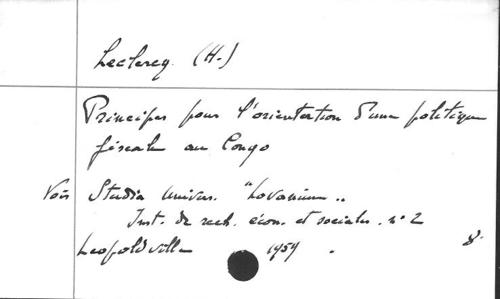 Leclercq. (H.)
Principes pour l'orientation d'une politique
fiscale au Congo
Voir Studia Univers. "Lovanium"
Inst. de rech. écon. et sociales. n° 2
Leopoldville 1959. 8°